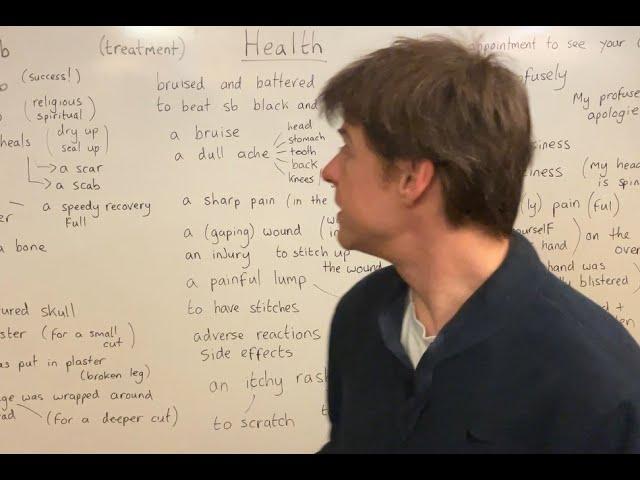 (treatment)
(success!)
(religious
spiritual)
heals (dry up
seal up)
→ a scar
→ a scab
a speedy recovery
Full
a bone
skull
(for a small
cut)
put in plaster
(broken leg)
was wrapped around
(for a deeper cut)
Health
bruised and battered
to beat sb black and
a bruise
a dull ache
head
stomach
tooth
back
knees
a sharp pain (in the
a (gaping) wound
an injury to stitch up
the wound
a painful lump
to have stitches
adverse reactions
side effects
an itchy
to scratch
to see your
My
(My head
is
(ly) pain (ful)
hand) on the
hand was
blistered